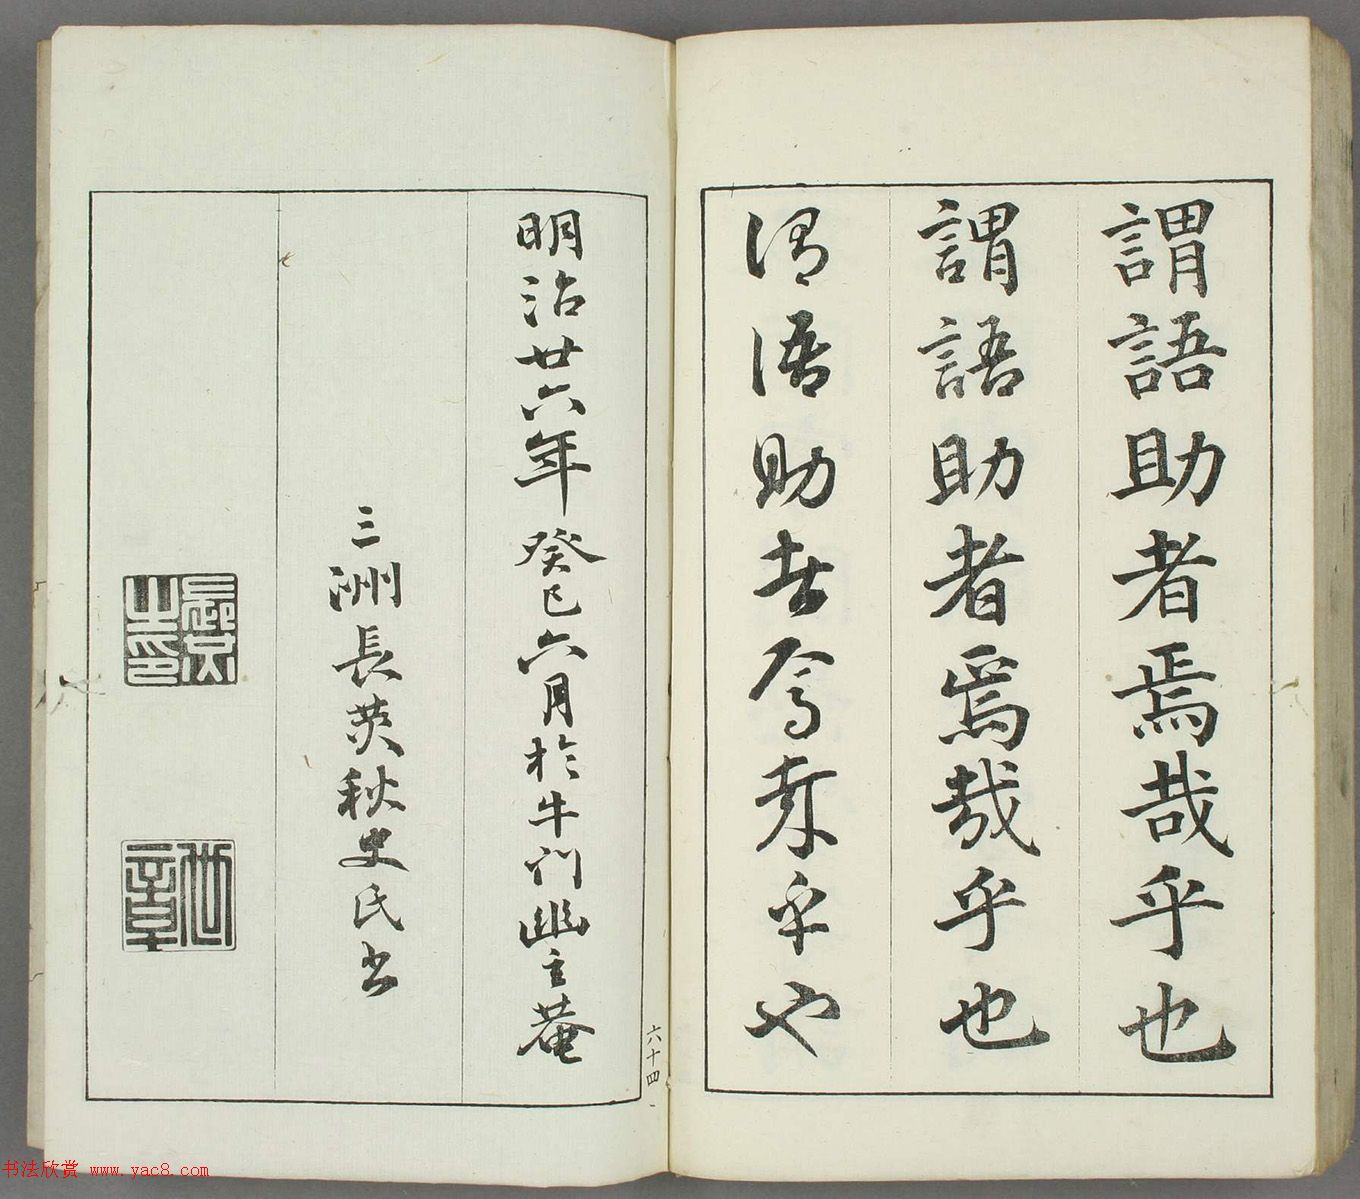 謂語助者焉哉乎也
謂語助者焉哉乎也
謂語助者焉哉乎也
六十四
明治廿六年癸巳六月於牛門幽玄菴
三洲長炗秋史氏书
長炗之印
世章
书法欣赏 www.yac8.com